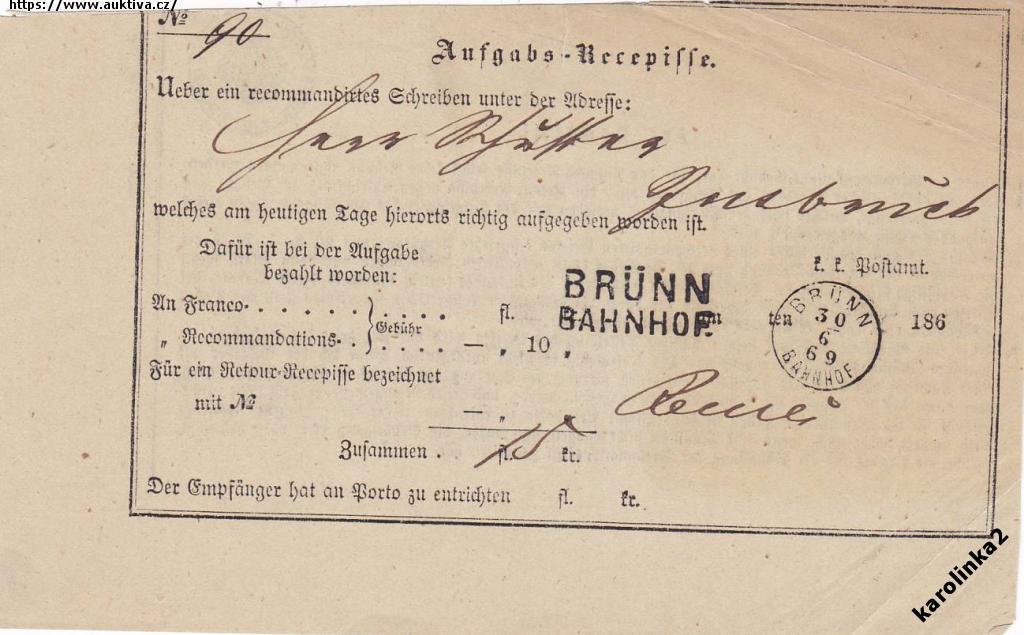 https://www.auktiva.cz/
№ 90
Aufgabs-Recepisse.
Ueber ein recommandirtes Schreiben unter der Adresse:
Herr Schuster
Insbruck
welches am heutigen Tage hierorts richtig aufgegeben worden ist.
Dafür ist bei der Aufgabe
bezahlt worden:
k. k. Postamt.
BRÜNN
BAHNHOF.
An Franco- . . . . . . . . . . fl.
Gebühr
„ Recommandations- . . . . . — „ 10 „
ten 186
BRÜNN
30
6
69
BAHNHOF
Für ein Retour-Recepisse bezeichnet
mit № — „ „
Zusammen . fl. 15 kr.
Der Empfänger hat an Porto zu entrichten fl. kr.
karolinka2